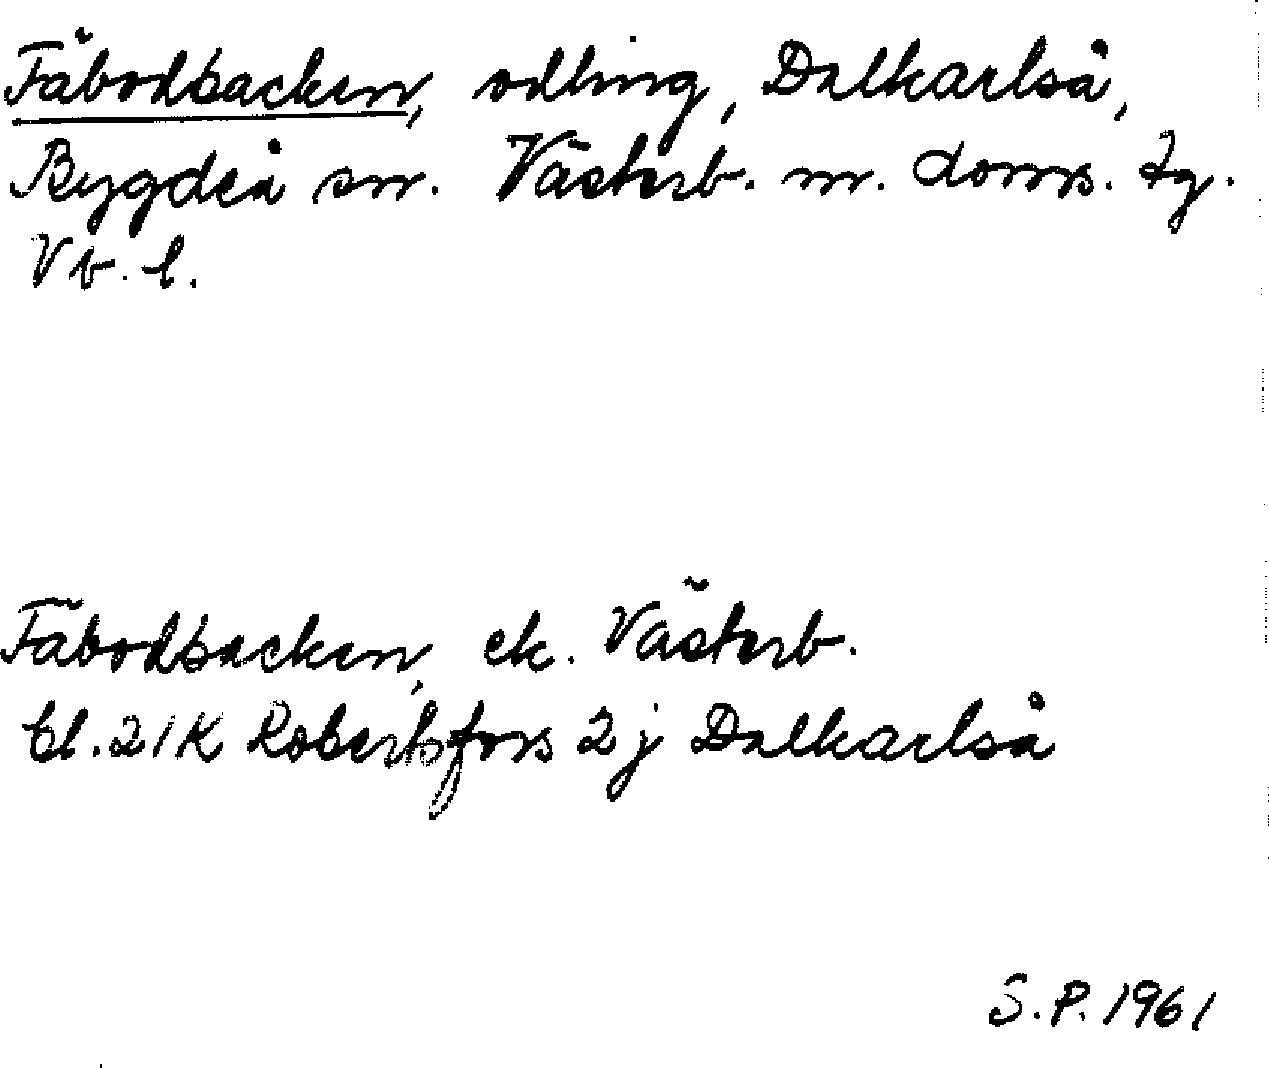 Fäbodbacken, odling, Dalkarlså,
Bygdeå sn. Västerb. n. doms. tg.
Vb. l.
Fäbodbacken, ek. Västerb.
bl. 21K Robertsfors 2j Dalkarlså
S.P. 1961